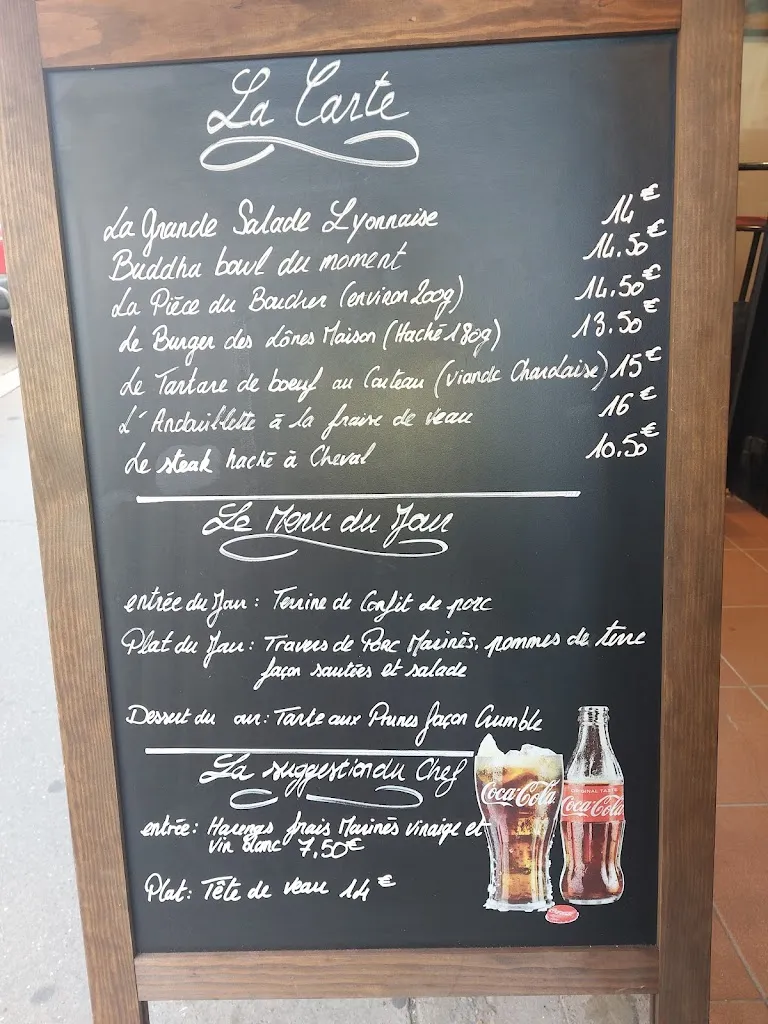 La Carte
La Grande Salade Lyonnaise 14€
Buddha bowl du moment 14.50€
La Pièce du Boucher (environ 200g) 14.50€
Le Burger des Lônes Maison (Haché 180g) 13.50€
Le Tartare de boeuf au Couteau (viande Charolaise) 15€
L'Andouillette à la fraise de veau 16€
Le steak haché à Cheval 10.50€
Le Menu du Jour
entrée du Jour : Terrine de Confit de porc
Plat du Jour : Travers de Porc Marinés, pommes de terre
façon sautées et salade
Dessert du our : Tarte aux Prunes façon Crumble
La suggestion du Chef
entrée : Harengs frais Marinés vinaigre et
vin blanc 7,50€
Plat : Tête de veau 14€
Coca-Cola
ORIGINAL TASTE
Coca-Cola